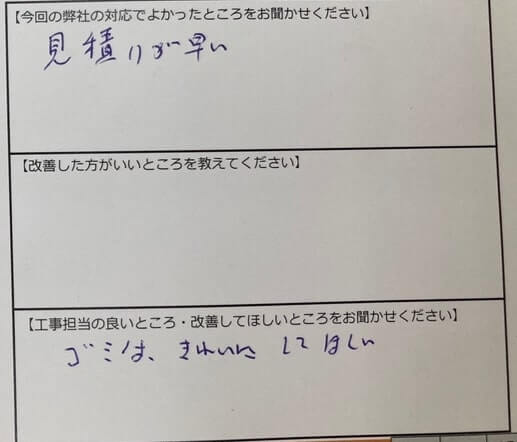 【今回の弊社の対応でよかったところをお聞かせください】
見積りが早い
【改善した方がいいところを教えてください】
【工事担当の良いところ・改善してほしいところをお聞かせください】
ゴミは、きれいに してほしい